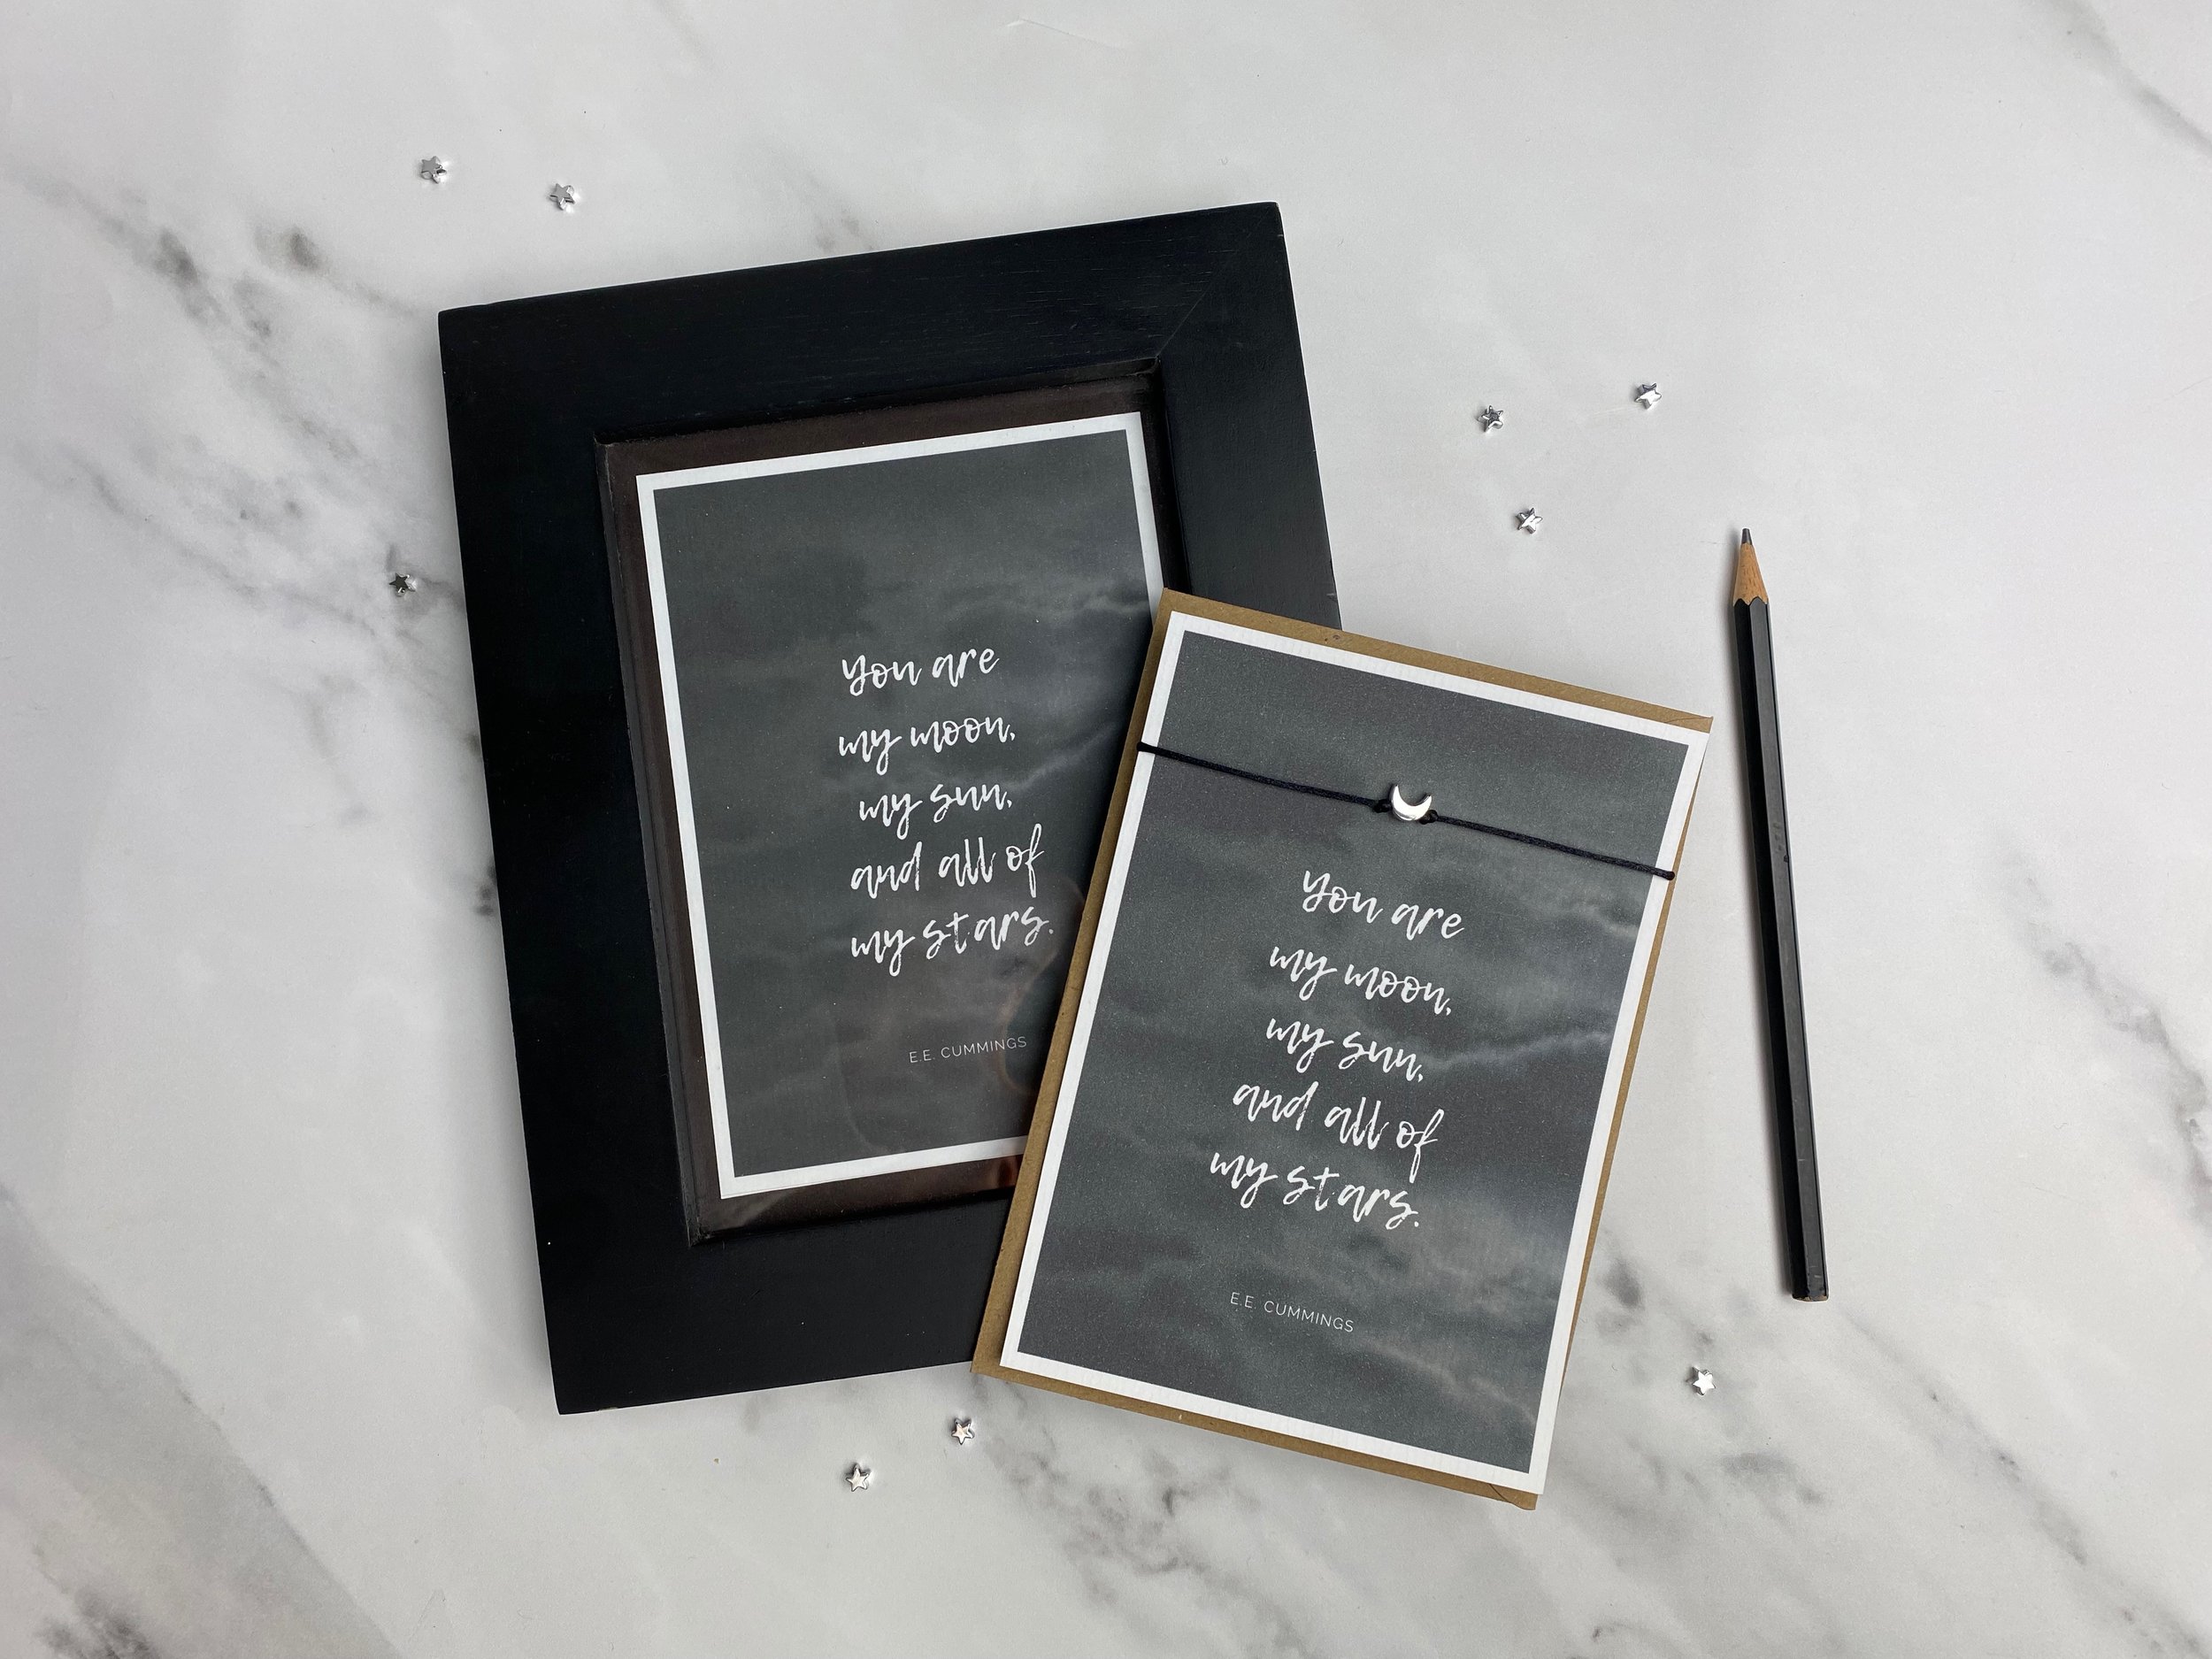 you are
my moon,
my sun,
and all of
my stars.
E.E. CUMMINGS
you are
my moon,
my sun,
and all of
my stars.
E.E. CUMMINGS